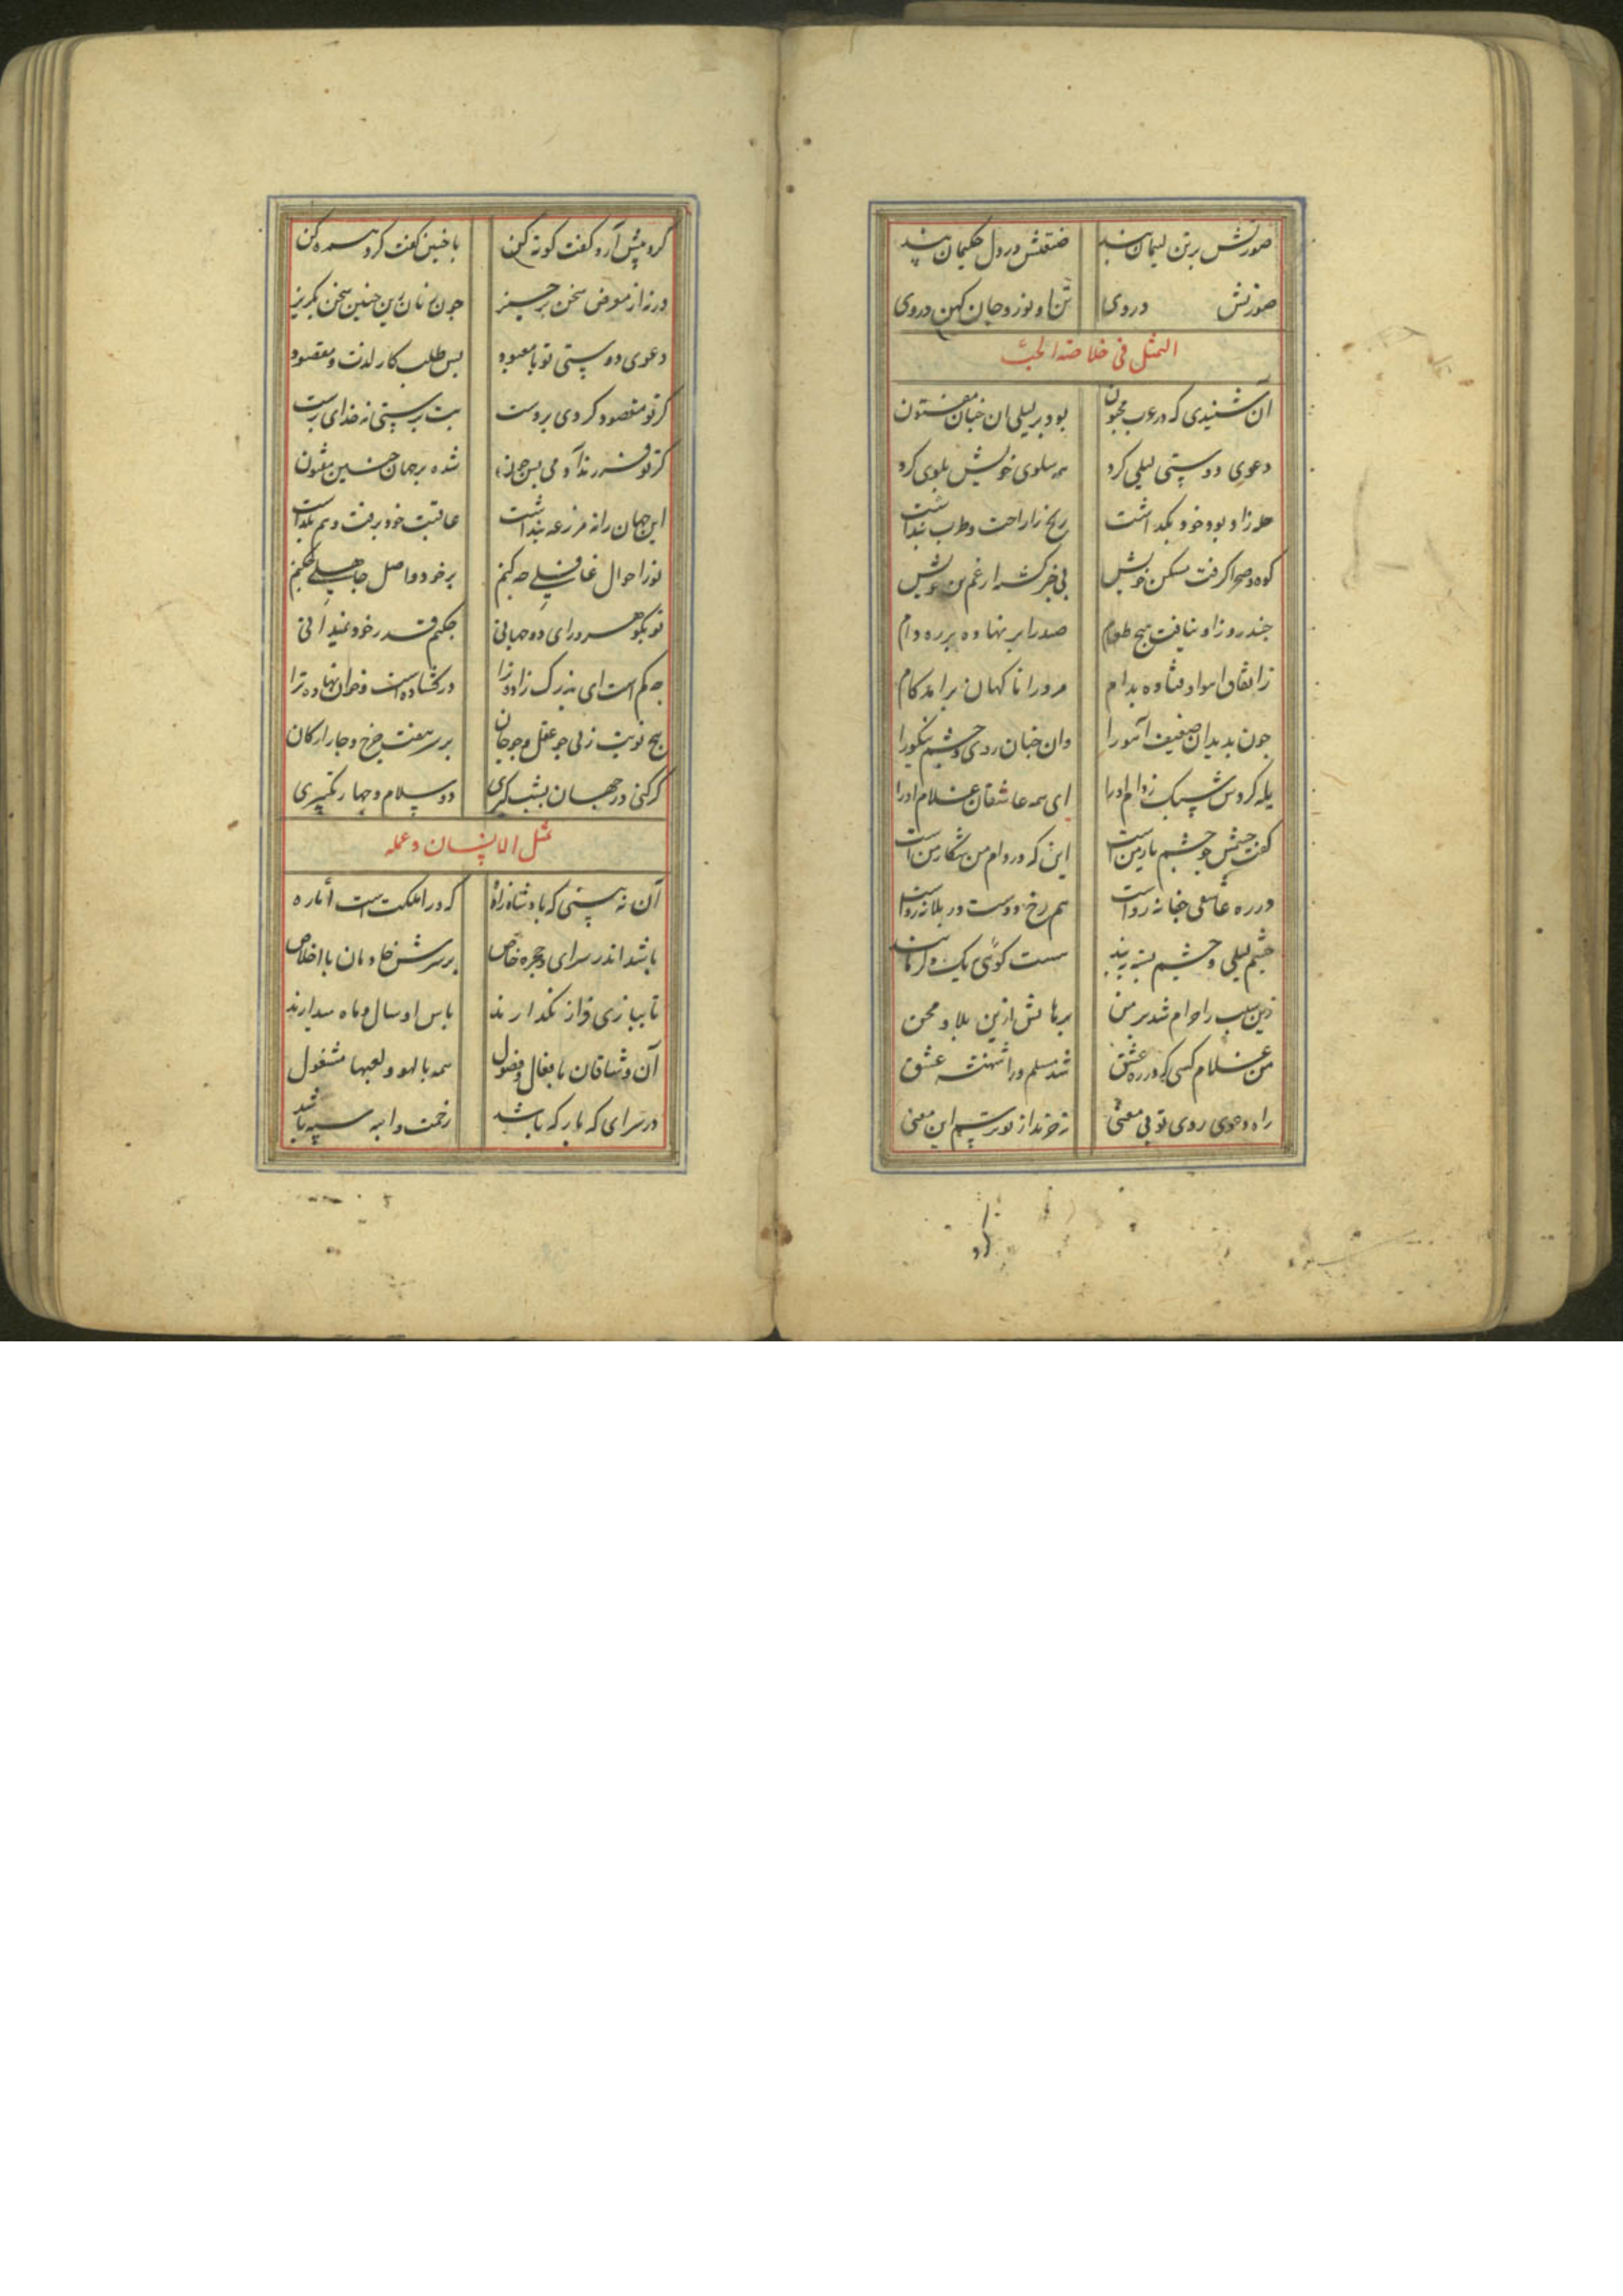 صورتش بر تن لیمان بند صفتش در دل حکیمان پند
صورتش در وی تن او نوز و جان کهن در وی
التمثل فی خلاصة الحب
آن شنیدی که در عرب مجنون بود بر لیلی ان جنان مفتون
دعوی دوستی لیلی کرد همه سلوی خویش بلوی کرد
حله زاد و بود خود بگذاشت رنج را راحت و طرب بنداشت
کوه و صحرا گرفت مسکن خویش بی خبر گشته از غم تن خویش
جند روز او نیافت هیچ طعام صید را بر نهاده بر ره دام
ز اتفاق آهو اوفتاده بدام مرد را ناکهان برامد کام
جون بدید ان ضعیف آهو را وان جنان روی و جشم نیکو را
یله کردش سبک ز دام او را ای همه عاشقان غلام او را
گفت جشمش جو جشم یار من است این که در دام من شکار من است
در ره عاشقی جفا نه رواست هم رخ دوست در بلا نه رواست
جشم لیلی و جشم بسته بند هست گوئی یک دگر مانند
زین سبب را حرام شد بر من برهانمش ازین بلا و محن
من غلام کسی که در ره عشق شد مسلم ورا شهنشه عشق
راه دعوی روی تو بی معنی نخرند از تو ترسم این معنی
کرد پیش آر و گفت کوته کن با جنین گفت کرد همره کن
ورنه از معرض سخن برخیز جون زنان زین جنین سخن بگریز
دعوی دوستی تو با معبود بس طلب کار لذت و مقصود
گر تو مقصود کردی بروست بت پرستی نه خدای پرست
گر تو فرزند آدمی بس جون شده بر جهان جنین مفتون
این جهان را نه مزرعه بنداشت عاقبت خود برفت و هم بگذاشت
تو ز احوال غافلی چه کنم بر خود و اصل جاهلی چکنم
تو بگوهر ورای دو جهانی چکنم قدر خود نمیدانی
چه کم است ای بزرگ زاد ترا در گشاده است و خوان نهاده ترا
پنج نوبت زنی جو عقل و جو جان بر سر هفت چرخ و جار ارکان
گر کنی در جهان بشب گیری دو سلام و چهار تکبیری
مثل الانسان و عمله
آن نه بینی که بادشاه زاده که ورا ملکت است آماده
باشد اندر سرای و حجره خاص بر سرش خادمان با اخلاص
تا ببازی فراز نگذارند پاس او سال و ماه میدارند
آن وشاقان با فعال و فضول همه با لهو و لعبها مشغول
در سرای که بارکه باشد زحمت دابه سپه باشد